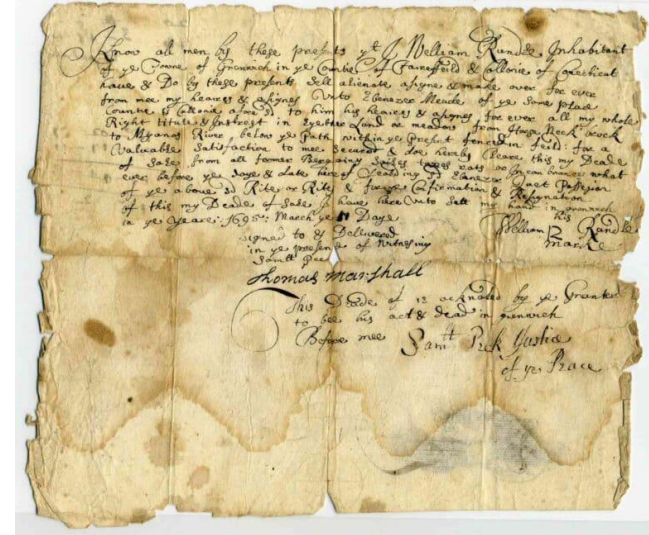 Know all men by these presents yt I William Rundle Inhabitant
of ye Towne of Greenwich in ye Countie of Faierfeild & Collonie of Conecticut
have & Do by these presents Sell alienate asigne & make over for ever
from mee my heaires & asignes Unto Ebenezer Meade of ye Same place
Countie & Collonie to him his heaires & asignes for ever all my whole
Right titule & Intrest in Land or meadow from Neck
to Myanos River below ye Path within ye Present fenced in feild: for a
Valuable Satisfaction to mee Secured & doe hereby Cleare this my Deade
of Sale from all former what
ever before ye daye & date hereof Ebenezer Quet Possesion
of ye above sd Rite or Rits & Confirmation & Resignation
of this my Deade of Sale I have here Unto Sett my hand in greenwich
in ye Yeare: 1695: March ye Daye
signed to & Dellivered
in ye presence of Witnesing
Samll Peck
William Rundle
his
Marke
Thomas Marshall
This Deade of acknoled by ye Granter
to bee his act & dead in greenwich
Before mee Samll Peck Justice
of ye Peace